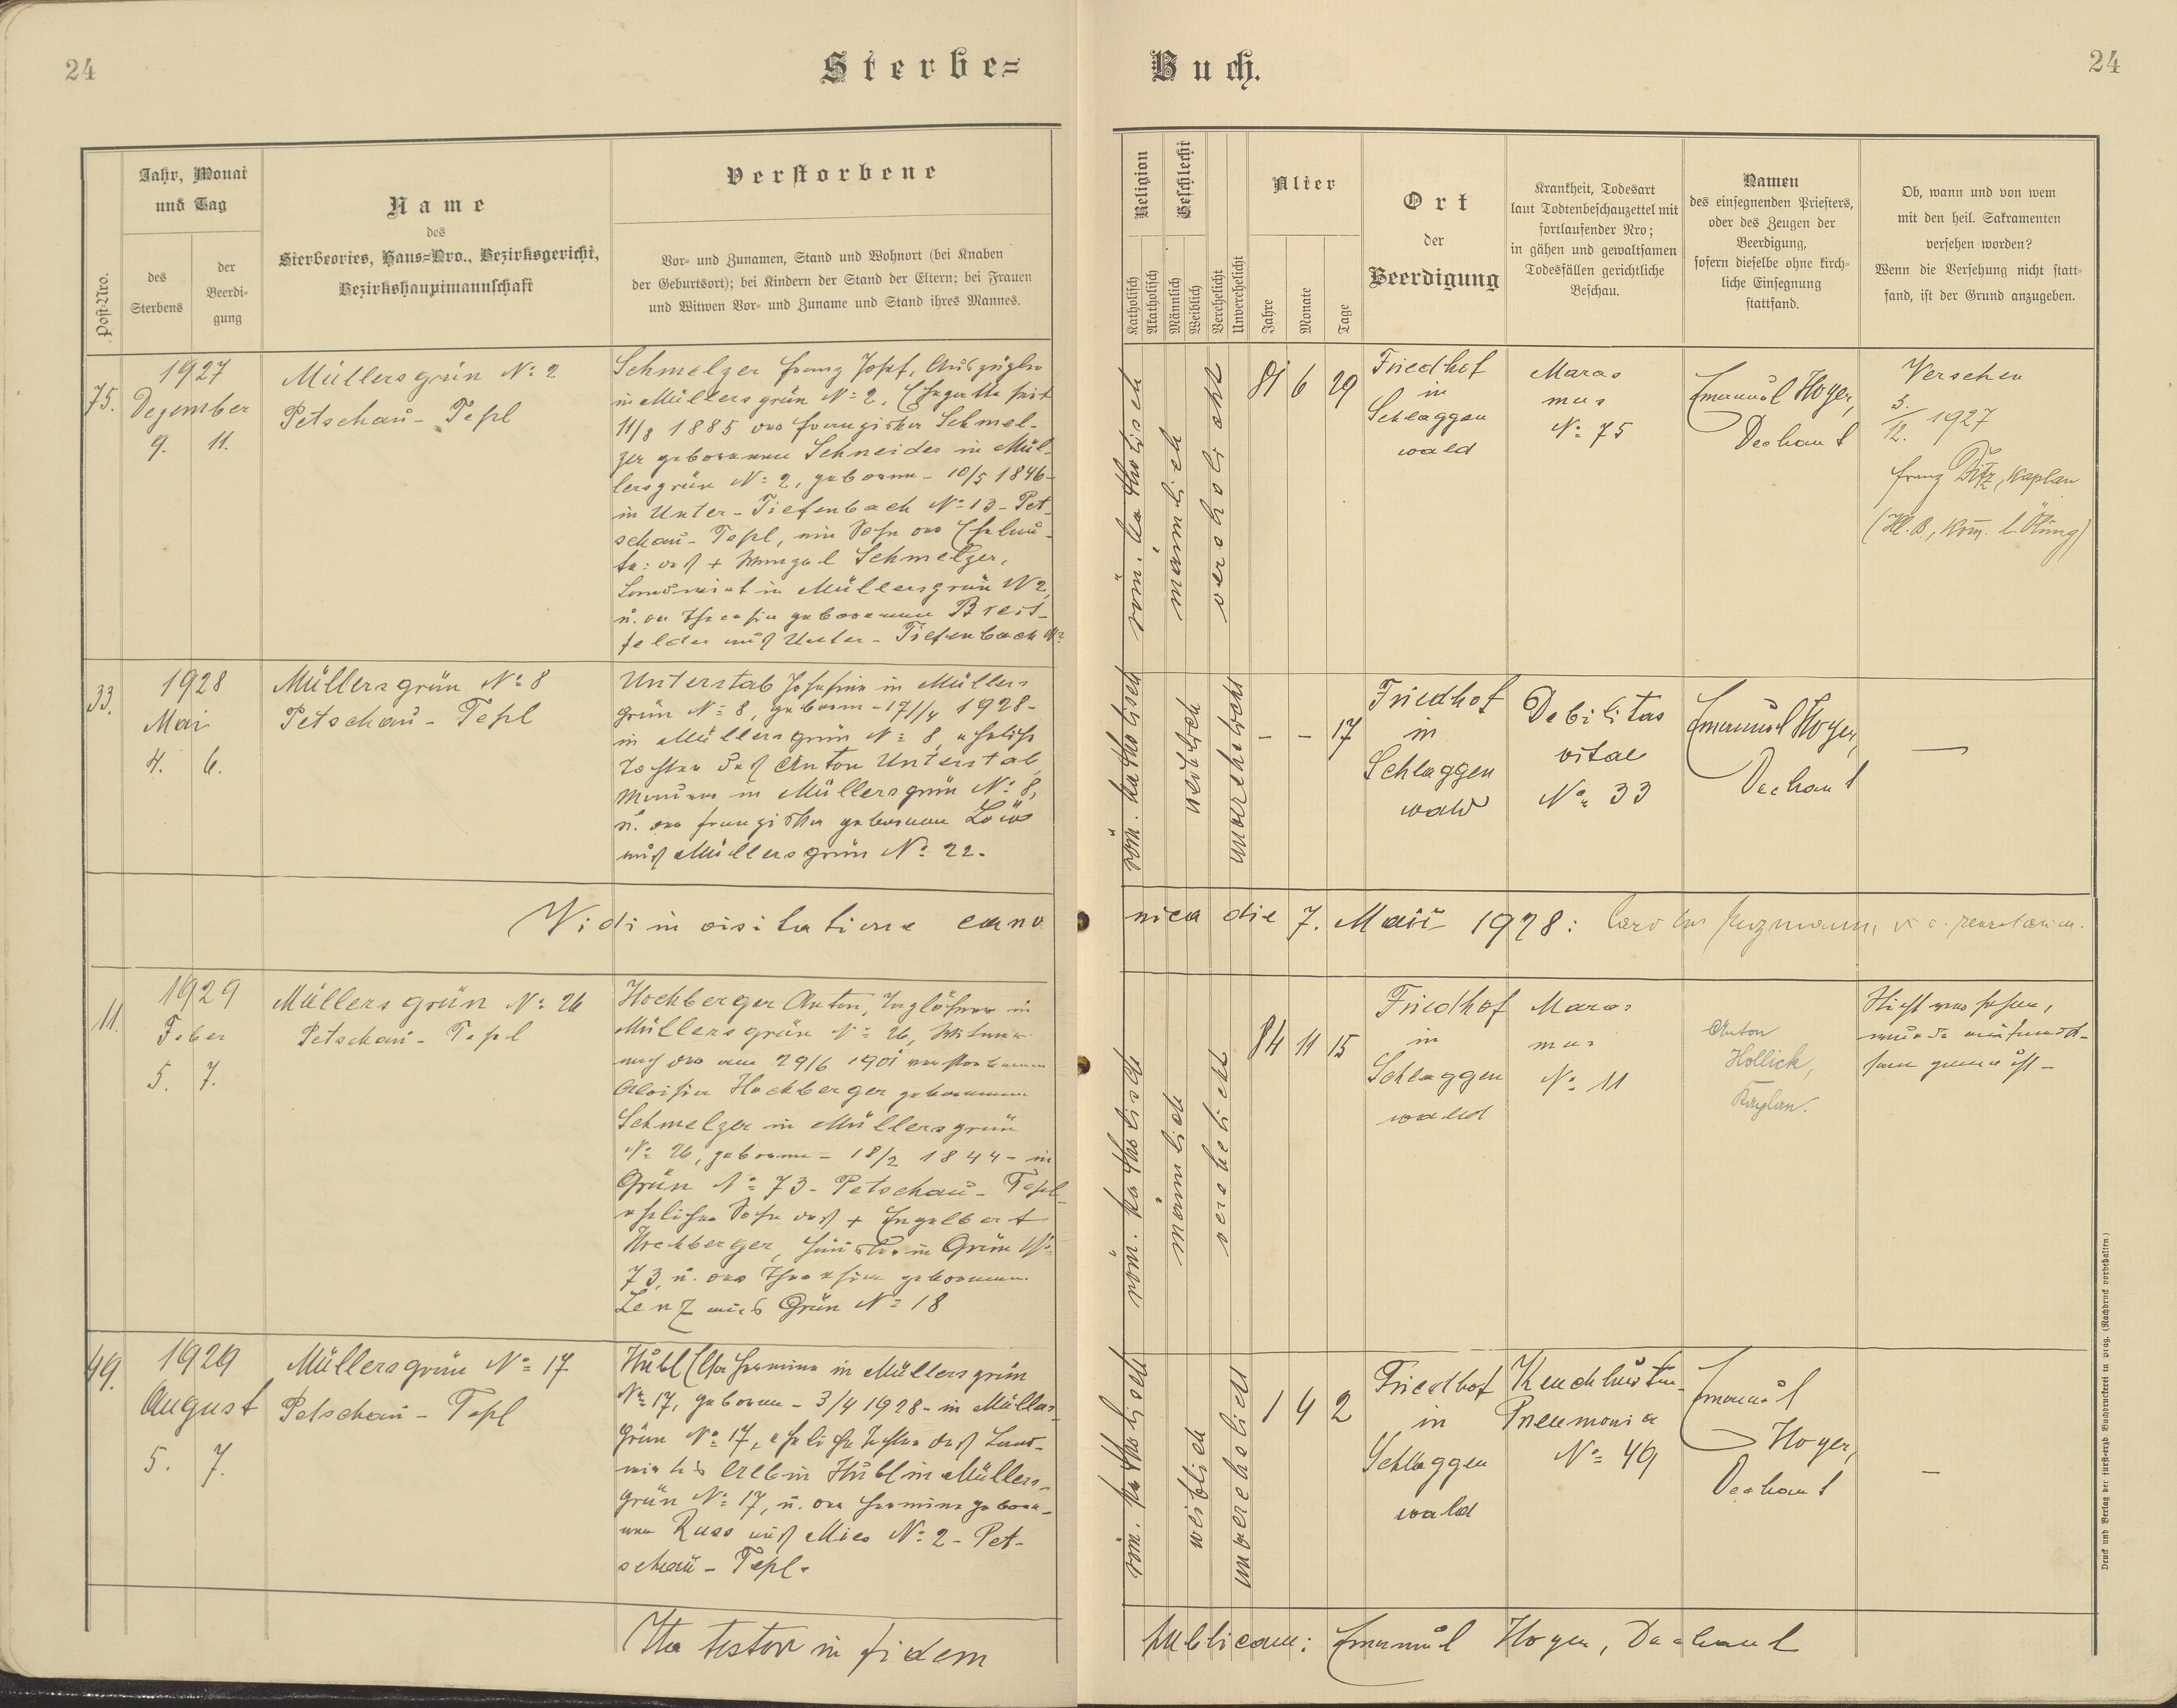 24
Sterbe=
Buch.
24
Post-Nro.
Jahr, Monat
und Tag
des
Sterbens
der
Beerdi-
gung
Name
des
Sterbeortes, Haus=Nro., Bezirksgericht,
Bezirkshauptmannschaft
Verstorbene
Vor- und Zunamen, Stand und Wohnort (bei Knaben
der Geburtsort); bei Kindern der Stand der Eltern; bei Frauen
und Witwen Vor- und Zuname und Stand ihres Mannes.
Religion
Katholisch
Akatholisch
Geschlecht
Männlich
Weiblich
Verehelicht
Unverehelicht
Alter
Jahre
Monate
Tage
Ort
der
Beerdigung
Krankheit, Todesart
laut Todtenbeschauzettel mit
fortlaufender Nro;
in gähen und gewaltsamen
Todesfällen gerichtliche
Beschau.
Namen
des einsegnenden Priesters,
oder des Zeugen der
Beerdigung,
sofern dieselbe ohne kirch-
liche Einsegnung
stattfand.
Ob, wann und von wem
mit den heil. Sakramenten
versehen worden?
Wenn die Versehung nicht statt-
fand, ist der Grund anzugeben.
75.
1927
Dezember
9. 11.
Müllersgrün No 2
Petschau - Tepl
Schmelzer Franz Josef, Auszügler
in Müllersgrün No 2, Ehegatte seit
11/8 1885 der Franziska Schmel-
zer geborenen Schneider in Mül-
lersgrün No 2, geboren - 10/5 1846 -
in Unter-Tiefenbach No 13 - Pet-
schau - Tepl, ein Sohn der Eheleu-
te: des + Wenzel Schmelzer,
Landwirt in Müllersgrün No 2,
u. der Theresia geborenen Breit-
felder aus Unter-Tiefenbach No
röm. katholisch
männlich
verehelicht
81 6 29
Friedhof
in
Schlaggen
wald
Maras
mus
No 75
Emanuel Hoyer,
Dechant
Versehen
3./12. 1927
Franz Kaplan
33.
1928
Mai
4. 6.
Müllersgrün No 8
Petschau - Tepl
Unterstab Josefine in Müllers
grün No 8, geboren - 17/4 1928 -
in Müllersgrün No 8, eheliche
Tochter des Anton Unterstab,
Maurer in Müllersgrün No 8,
u. der Franziska geborenen Löw
aus Müllersgrün No 22.
röm. katholisch
weiblich
unverehelicht
- - 17
Friedhof
in
Schlaggen
wald
Debilitas
vitae
No 33
Emanuel Hoyer,
Dechant
—
Vidi in visitatione cano
nica die 7. Maii 1928:
11.
1929
Feber
5. 7.
Müllersgrün No 26
Petschau - Tepl
Hochberger Anton, Taglöhner in
Müllersgrün No 26, Witwer
nach der am 29/6 1901 verstorbenen
Aloisia Hochberger geborenen
Schmelzer in Müllersgrün
No 26, geboren - 18/2 1844 - in
Grün No 73 - Petschau - Tepl
ehelicher Sohn des + Engelbert
Hochberger, Häusler in Grün No
73, u. der Theresia geborenen
Lenz aus Grün No 18
röm. katholisch
männlich
verehelicht
84 11 15
Friedhof
in
Schlaggen
wald
Maras
mus
No 11
Anton
Hollick,
Kaplan.
Nicht versehen,
49.
1929
August
5. 7.
Müllersgrün No 17
Petschau - Tepl
Hübl Ella Hermine in Müllersgrün
No 17, geboren - 3/4 1928 - in Müllers-
grün No 17, eheliche Tochter des Land-
wirts Erwin Hübl in Müllers-
grün No 17, u. der Hermine gebore-
nen Russ aus Mies No 2 - Pet-
schau - Tepl.
röm. katholisch
weiblich
unverehelicht
1 4 2
Friedhof
in
Schlaggen
wald
Keuchhusten
Pneumonia
No 49
Emanuel
Hoyer,
Dechant
—
Ita testor in fidem
publicam: Emanuel Hoyer, Dechant
Druck und Verlag der fürsterzb. Buchdruckerei in Prag. (Nachdruck vorbehalten.)